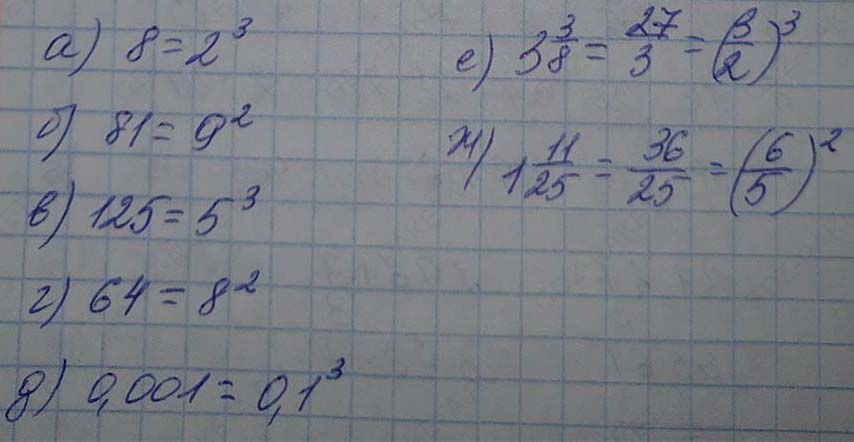 а) 8 = 2³
б) 81 = 9²
в) 125 = 5³
г) 64 = 8²
д) 0,001 = 0,1³
е) 3 3/8 = 27/3 = (3/2)³
ж) 1 11/25 = 36/25 = (6/5)²